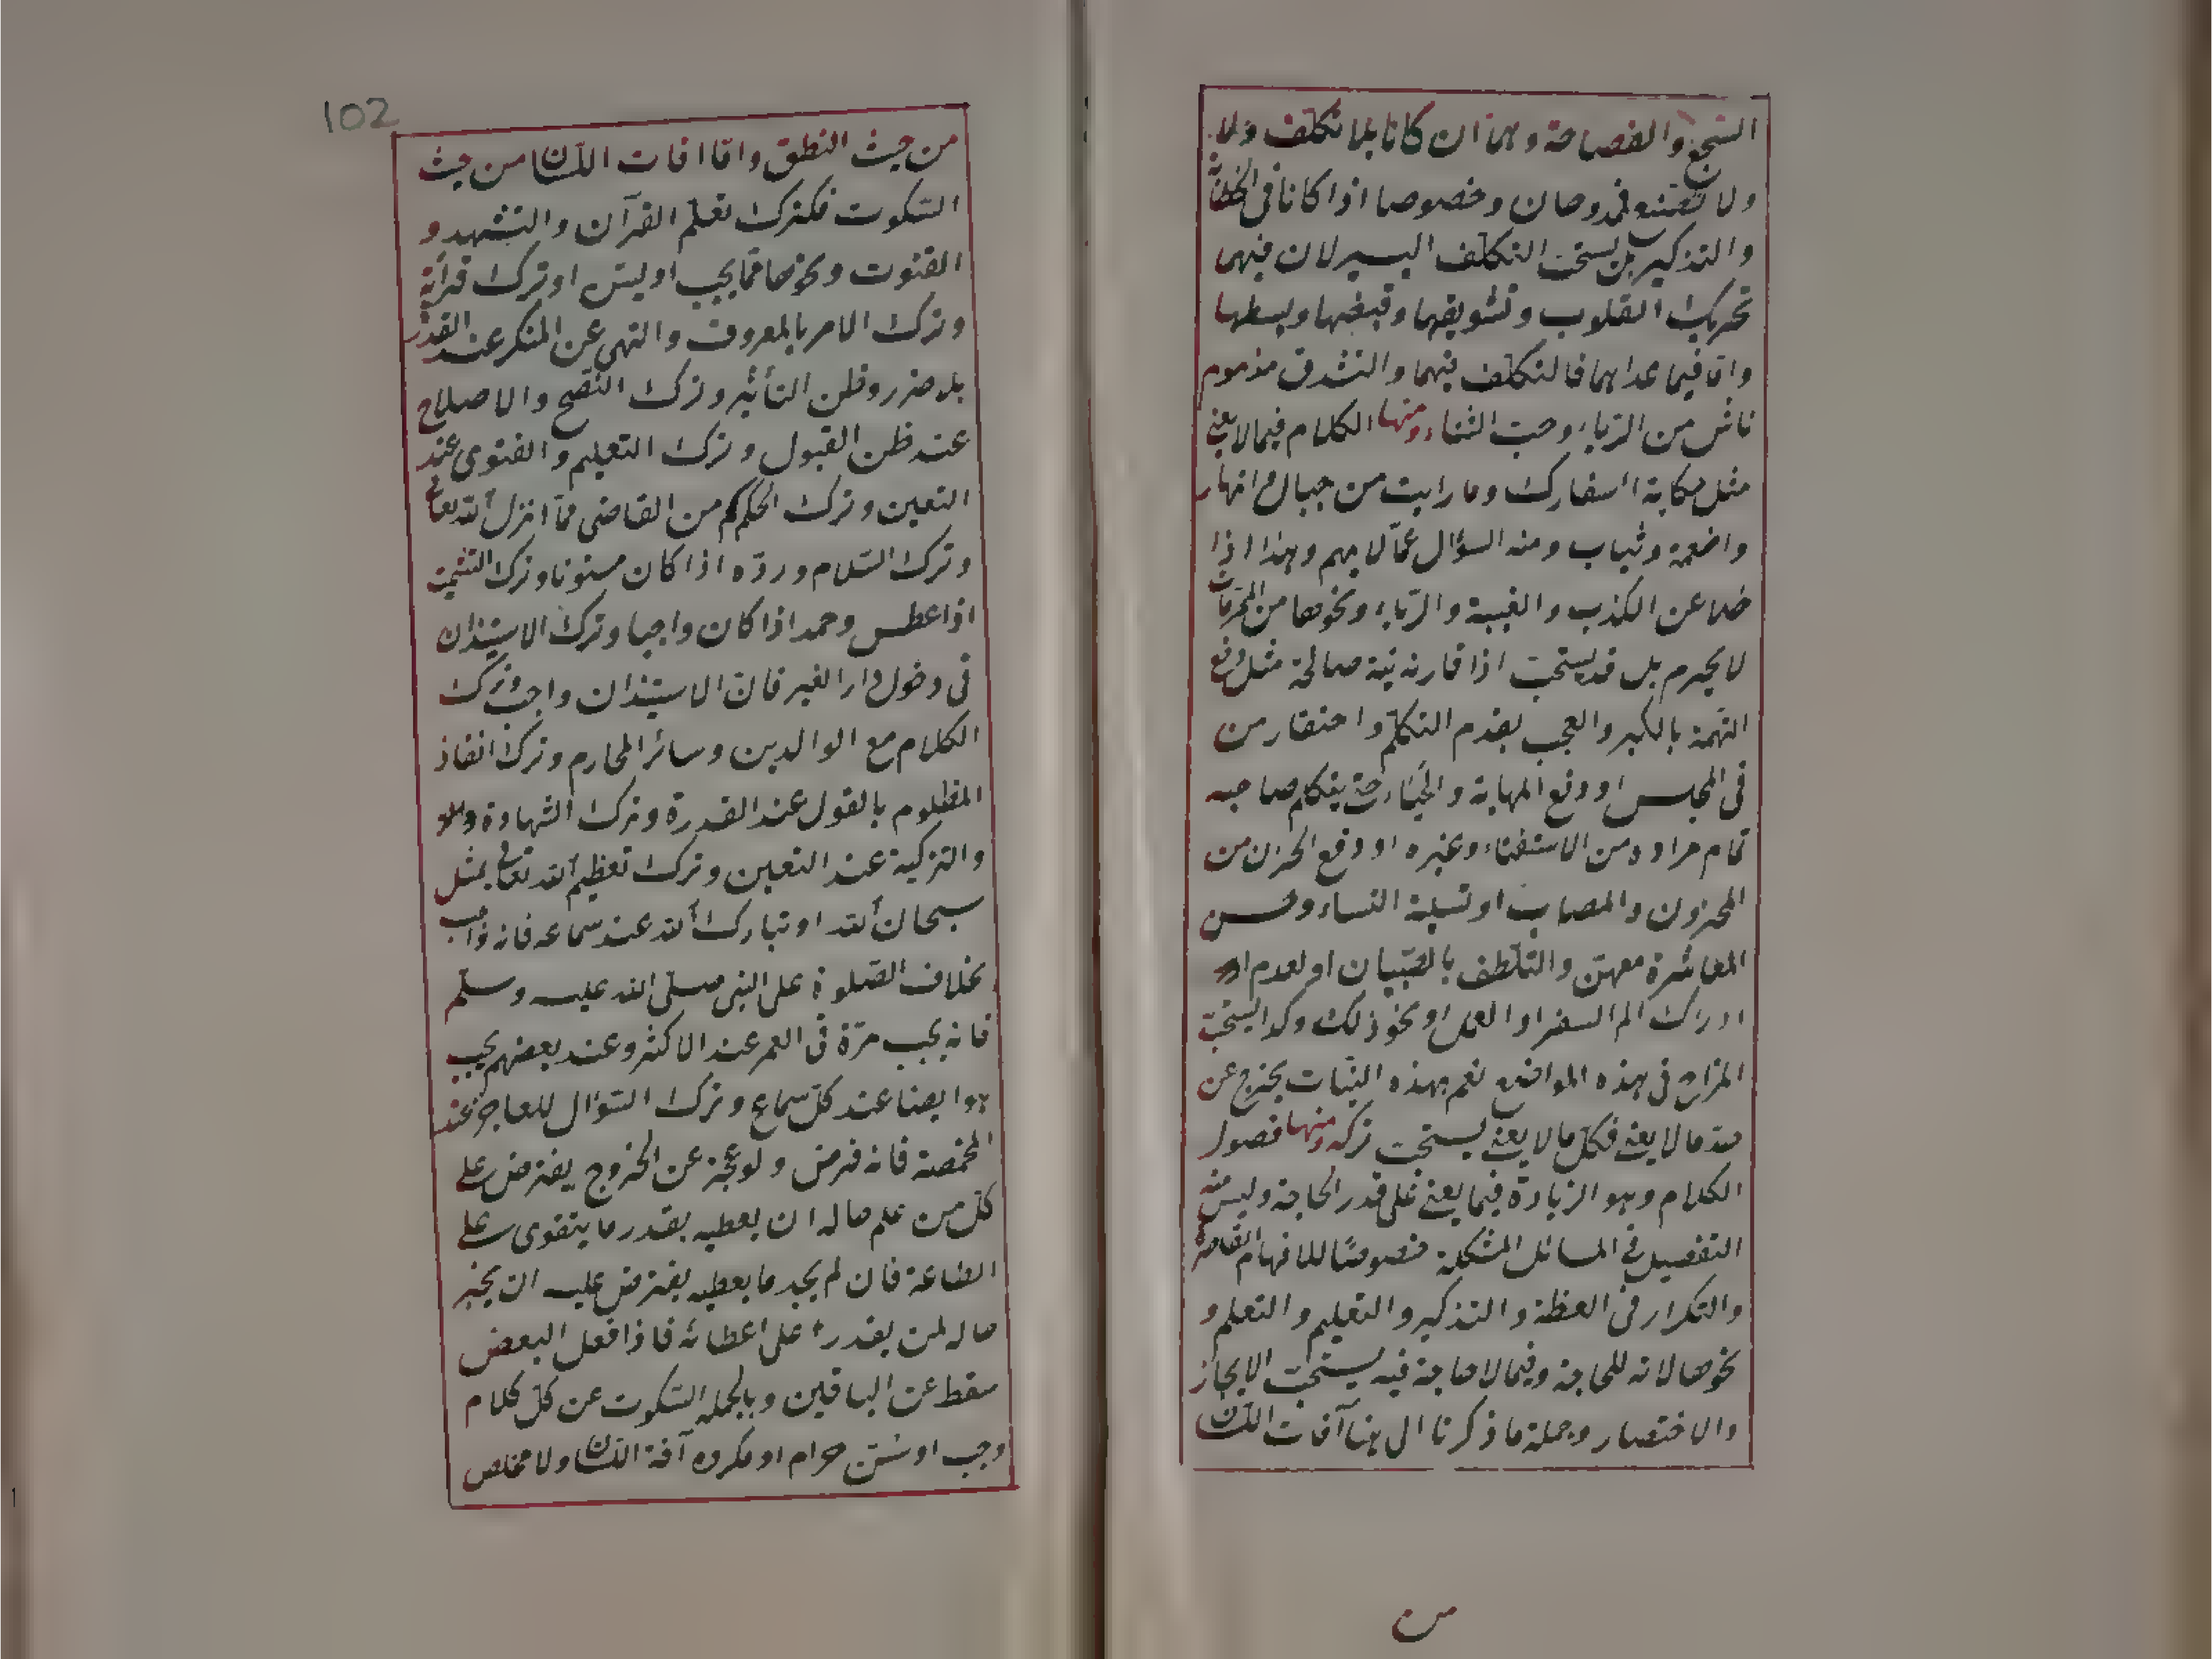 السجع والفصاحة وهما ان كانا بلا تكلف ولا
ولا تصنع فمدوحان وخصوصا اذا كانا فى الخطابة
والتذكير بل يستحب التكلف اليسير لان فيهما
تحريك القلوب وتشويقها وقبضها وبسطها
واما فيما عداهما فالتكلف فيهما والتشدق مذموم
ناش من الرياء وحب الثناء ومنها الكلام فيما لا يعنى
مثل حكاية اسفارك وما رايت من جبال وانهار
واطعمة وثياب ومنه السؤال عما لا يهم وهذا اذا
خلا عن الكذب والغيبة والرياء ونحوها من المحرمات
لا يحرم بل قد يستحب اذا قارنه نية صالحة مثل دفع
التهمة بالكبر والعجب بعدم التكلم واحتقار من
فى المجلس او دفع المهابة والحياء حتى يتكلم صاحبه
تمام مراده من الاستفتاء وغيره او دفع الحزن من
المحزون والمصاب او تسلية النساء وحسن
المعاشرة معهن والتلطف بالصبيان او لعدم
ادراك الم السفر او العمل او نحو ذلك وكذا يستحب
المزاح فى هذه المواضع نعم بهذه النيات يخرج عن
حد ما لا يعنى فكل ما لا يعنى يستحب تركه ومنها فضول
الكلام وهو الزيادة فيما يعنى على قدر الحاجة وليس منه
التفصيل فى المسائل المشكلة خصوصا للافهام القاصرة
والتكرار فى العظة والتذكير والتعليم والتعلم و
نحوها لانه للحاجة وفيما لا حاجة فيه يستحب الايجاز
والاختصار وجملة ما ذكرنا الى هنا آفات اللسان
من
102
من حيث النطق واما افات اللسان من حيث
السكوت فكترك تعلم القرآن والتشهد و
القنوت ونحوها مما يجب او يسن او ترك قرأته
وترك الامر بالمعروف والنهى عن المنكر عند القدرة
بلا ضرر وظن التأثير وترك النصح والاصلاح
عند ظن القبول وترك التعليم والفتوى عند
التعين وترك الحكم من القاضى مما انزل الله تعالى
وترك السلام ورده اذا كان مسنونا وترك التشميت
اذا عطس وحمد اذا كان واجبا وترك الاستيذان
فى دخول دار الغير فان الاستيذان واجب وترك
الكلام مع الوالدين وسائر المحارم وترك انقاذ
المظلوم بالقول عند القدرة وترك الشهادة
والتزكية عند التعين وترك تعظيم الله تعالى بمثل
سبحان الله او تبارك الله عند سماعه فانه واجب
بخلاف الصلوة على النبى صلى الله عليه وسلم
فانه يجب مرة فى العمر عند الاكثر وعند بعضهم يجب
ايضا عند كل سماع وترك السؤال للعاجز عند
المخمصة فانه فرض ولو عجز عن الخروج يفترض على
كل من علم حاله ان يعطيه بقدر ما يتقوى على
الطاعة فان لم يجد ما يعطيه يفترض عليه ان يخبر
حاله لمن يقدر على اعطائه فاذا فعل البعض
سقط عن الباقين وبالجملة السكوت عن كل كلام
وجب او سن حرام او مكروه آفة اللسان ولا مخلص